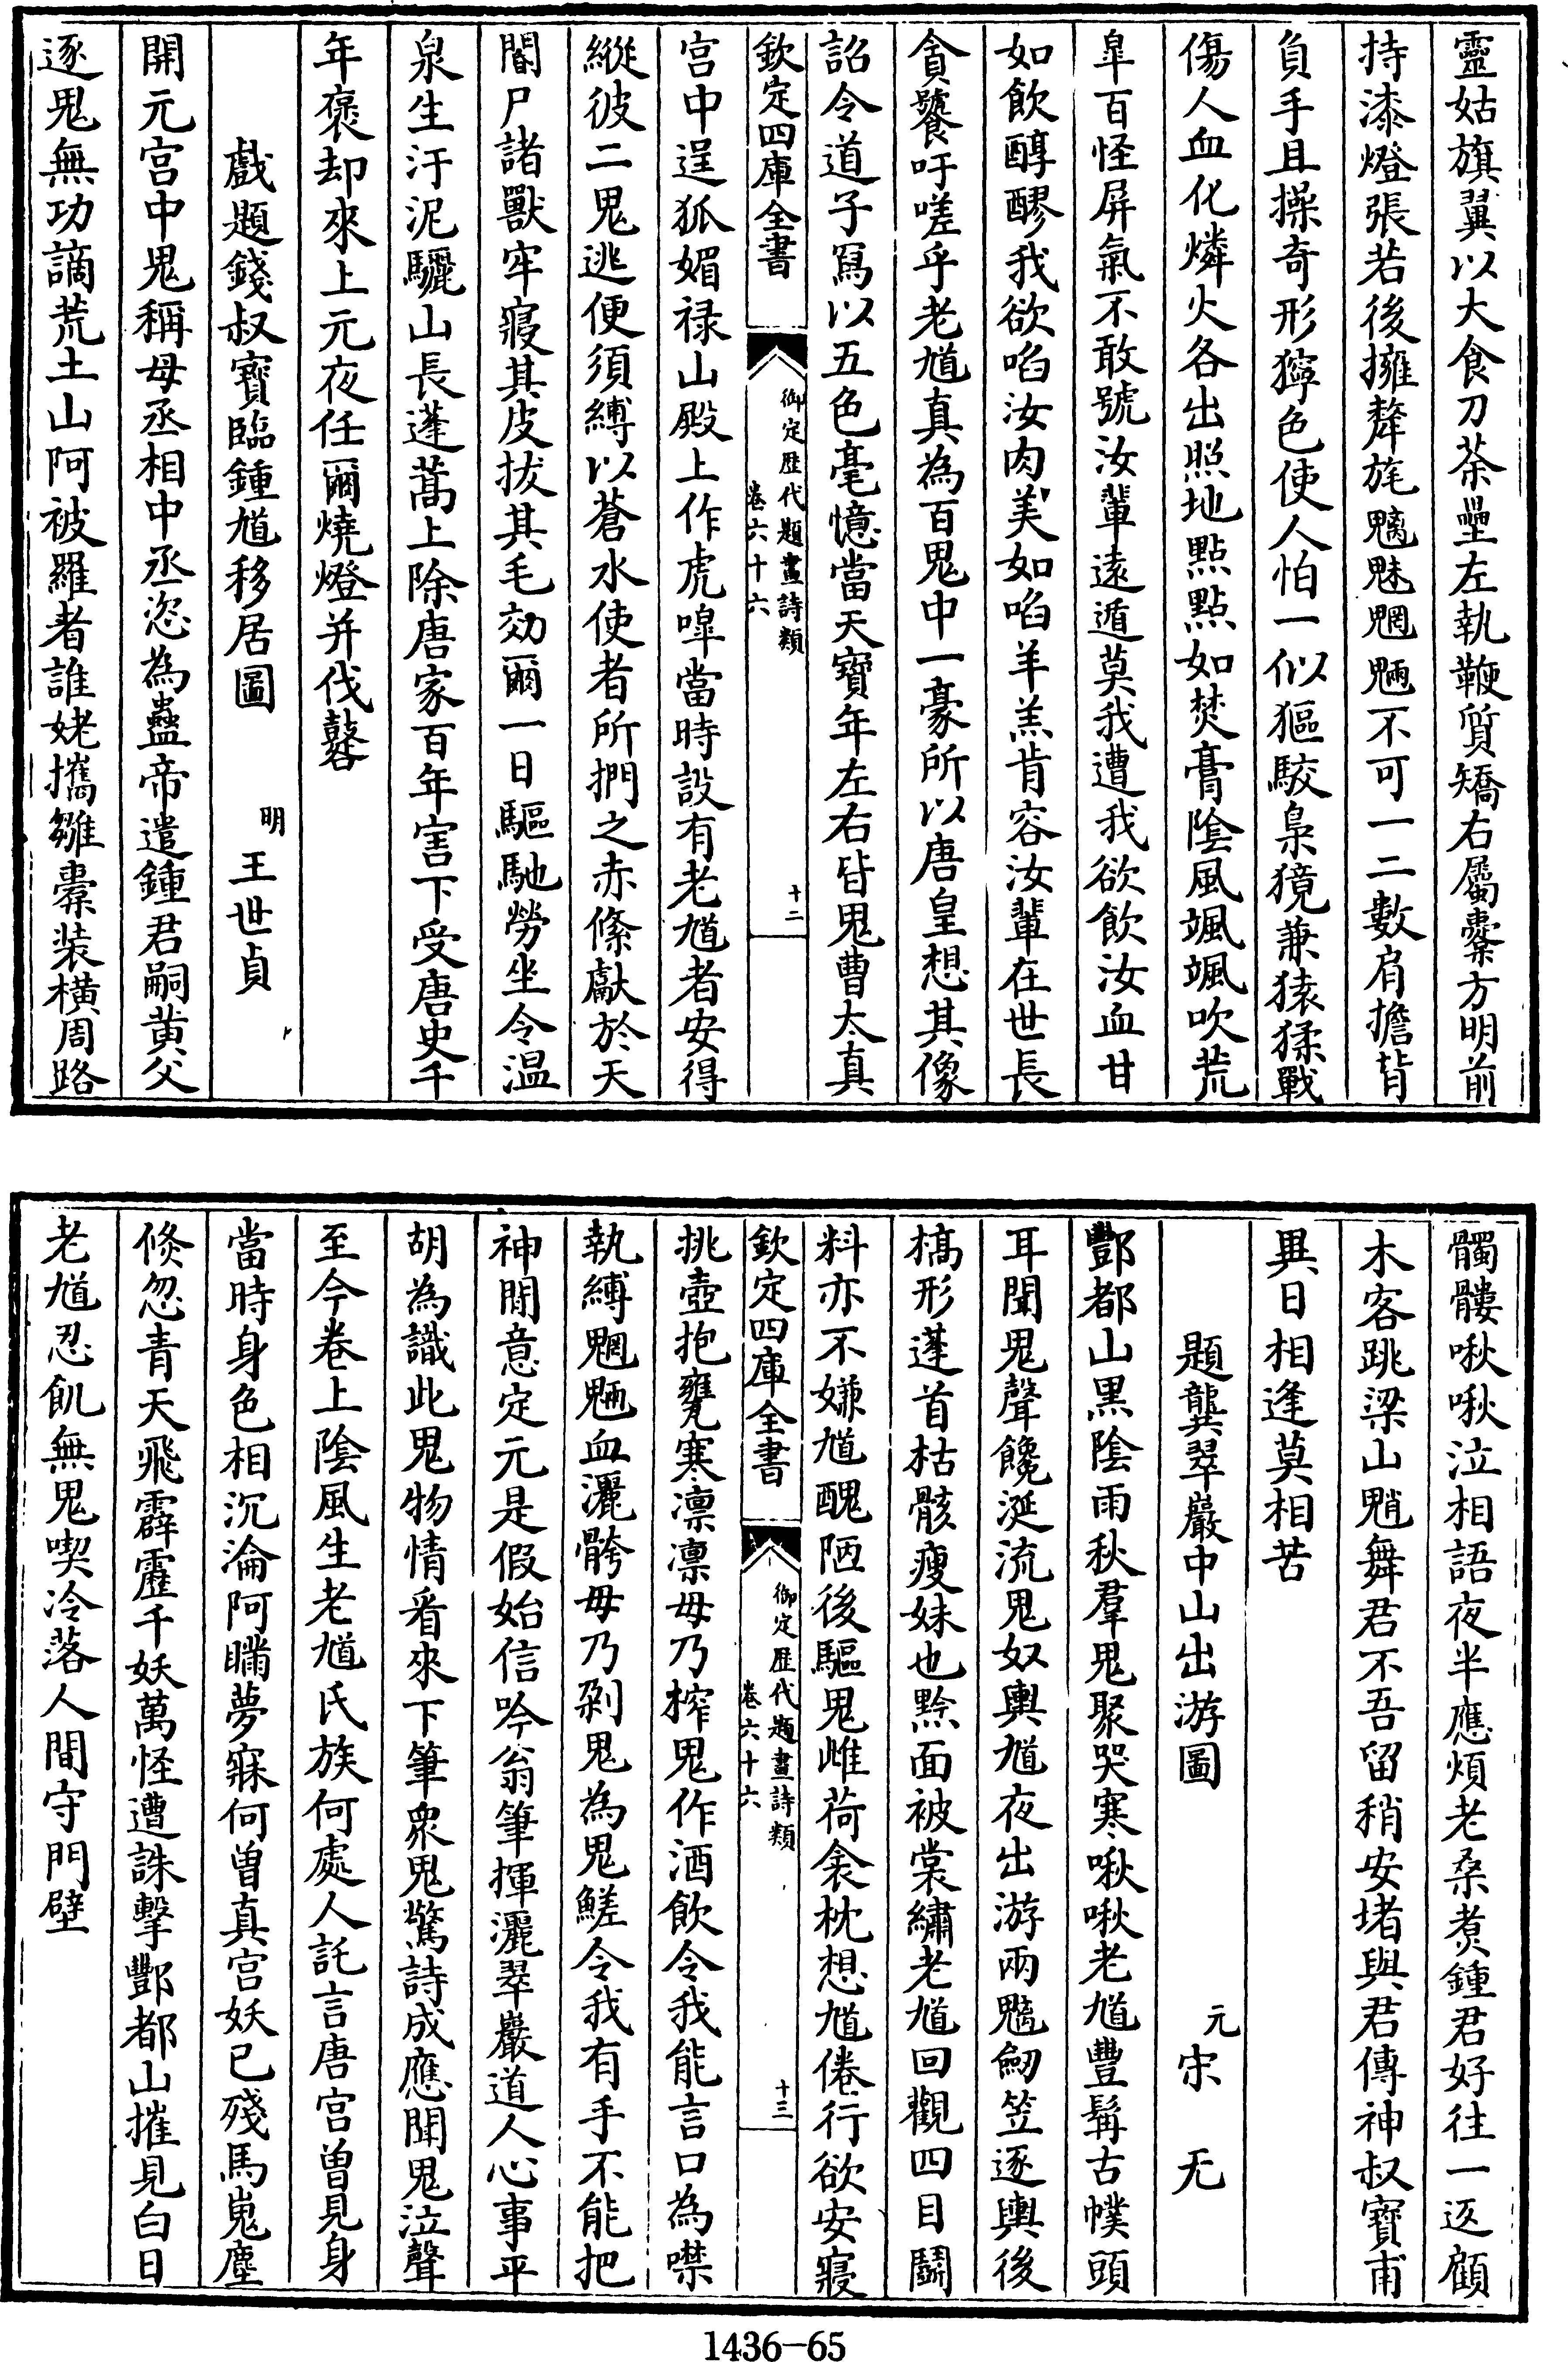 靈姑旗翼以大食刀荼壘左執鞭質矯右屬櫜方明前
持漆燈張若後擁犛旄魑魅魍魎不可一二數肩擔背
負手且操奇形獰色使人怕一似貙駮梟獍兼猿猱戰
傷人血化燐火各出照地點點如焚膏陰風颯颯吹荒
臯百怪屏氣不敢號汝輩逺遁莫我遭我欲飲汝血甘
如飲醇醪我欲啗汝肉美如啗羊羔肯容汝輩在世長
貪饕吁嗟乎老馗真為百鬼中一豪所以唐皇想其像
詔令道子冩以五色毫憶當天寳年左右皆鬼曹太真
欽定四庫全書
御定歴代題畫詩類
卷六十六
十二
宫中逞狐媚祿山殿上作虎嘷當時設有老馗者安得
縱彼二鬼逃便須縛以蒼水使者所捫之赤絛獻於天
閽尸諸獸牢寢其皮拔其毛効爾一日驅馳勞坐令温
泉生汙泥驪山長蓬蒿上除唐家百年害下受唐史千
年褒却來上元夜任爾燒燈并伐鼛
戲題錢叔寳臨鍾馗移居圖
明
王世貞
開元宫中鬼稱母丞相中丞恣為蠱帝遣鍾君嗣黄父
逐鬼無功謫荒土山阿被羅者誰姥攜雛橐装横周路
髑髏啾啾泣相語夜半應煩老桑煮鍾君好往一迓顧
木客跳梁山魈舞君不吾留稍安堵與君傳神叔寳甫
異日相逢莫相苦
題龔翠巖中山出游圖
元
宋无
酆都山黒陰雨秋羣鬼聚哭寒啾啾老馗豐髯古幞頭
耳聞鬼聲饞涎流鬼奴輿馗夜出游兩魕劒笠逐輿後
槁形蓬首枯骸瘦妹也黔面被裳繡老馗回觀四目鬭
料亦不嫌馗醜陋後驅鬼雌荷衾枕想馗倦行欲安寢
欽定四庫全書
御定歴代題畫詩類
卷六十六
十三
挑壺抱甕寒凛凛毋乃榨鬼作酒飲令我能言口為噤
執縛魍魎血灑骻毋乃剁鬼為鬼鮓令我有手不能把
神閒意定元是假始信吟翁筆揮灑翠巖道人心事平
胡為識此鬼物情㸔來下筆衆鬼驚詩成應聞鬼泣聲
至今卷上陰風生老馗氏族何處人託言唐宫曾見身
當時身色相沉淪阿瞞夢寐何曽真宫妖已殘馬嵬塵
倐忽青天飛霹靂千妖萬怪遭誅擊酆都山摧見白日
老馗忍飢無鬼喫冷落人間守門壁
1436—65